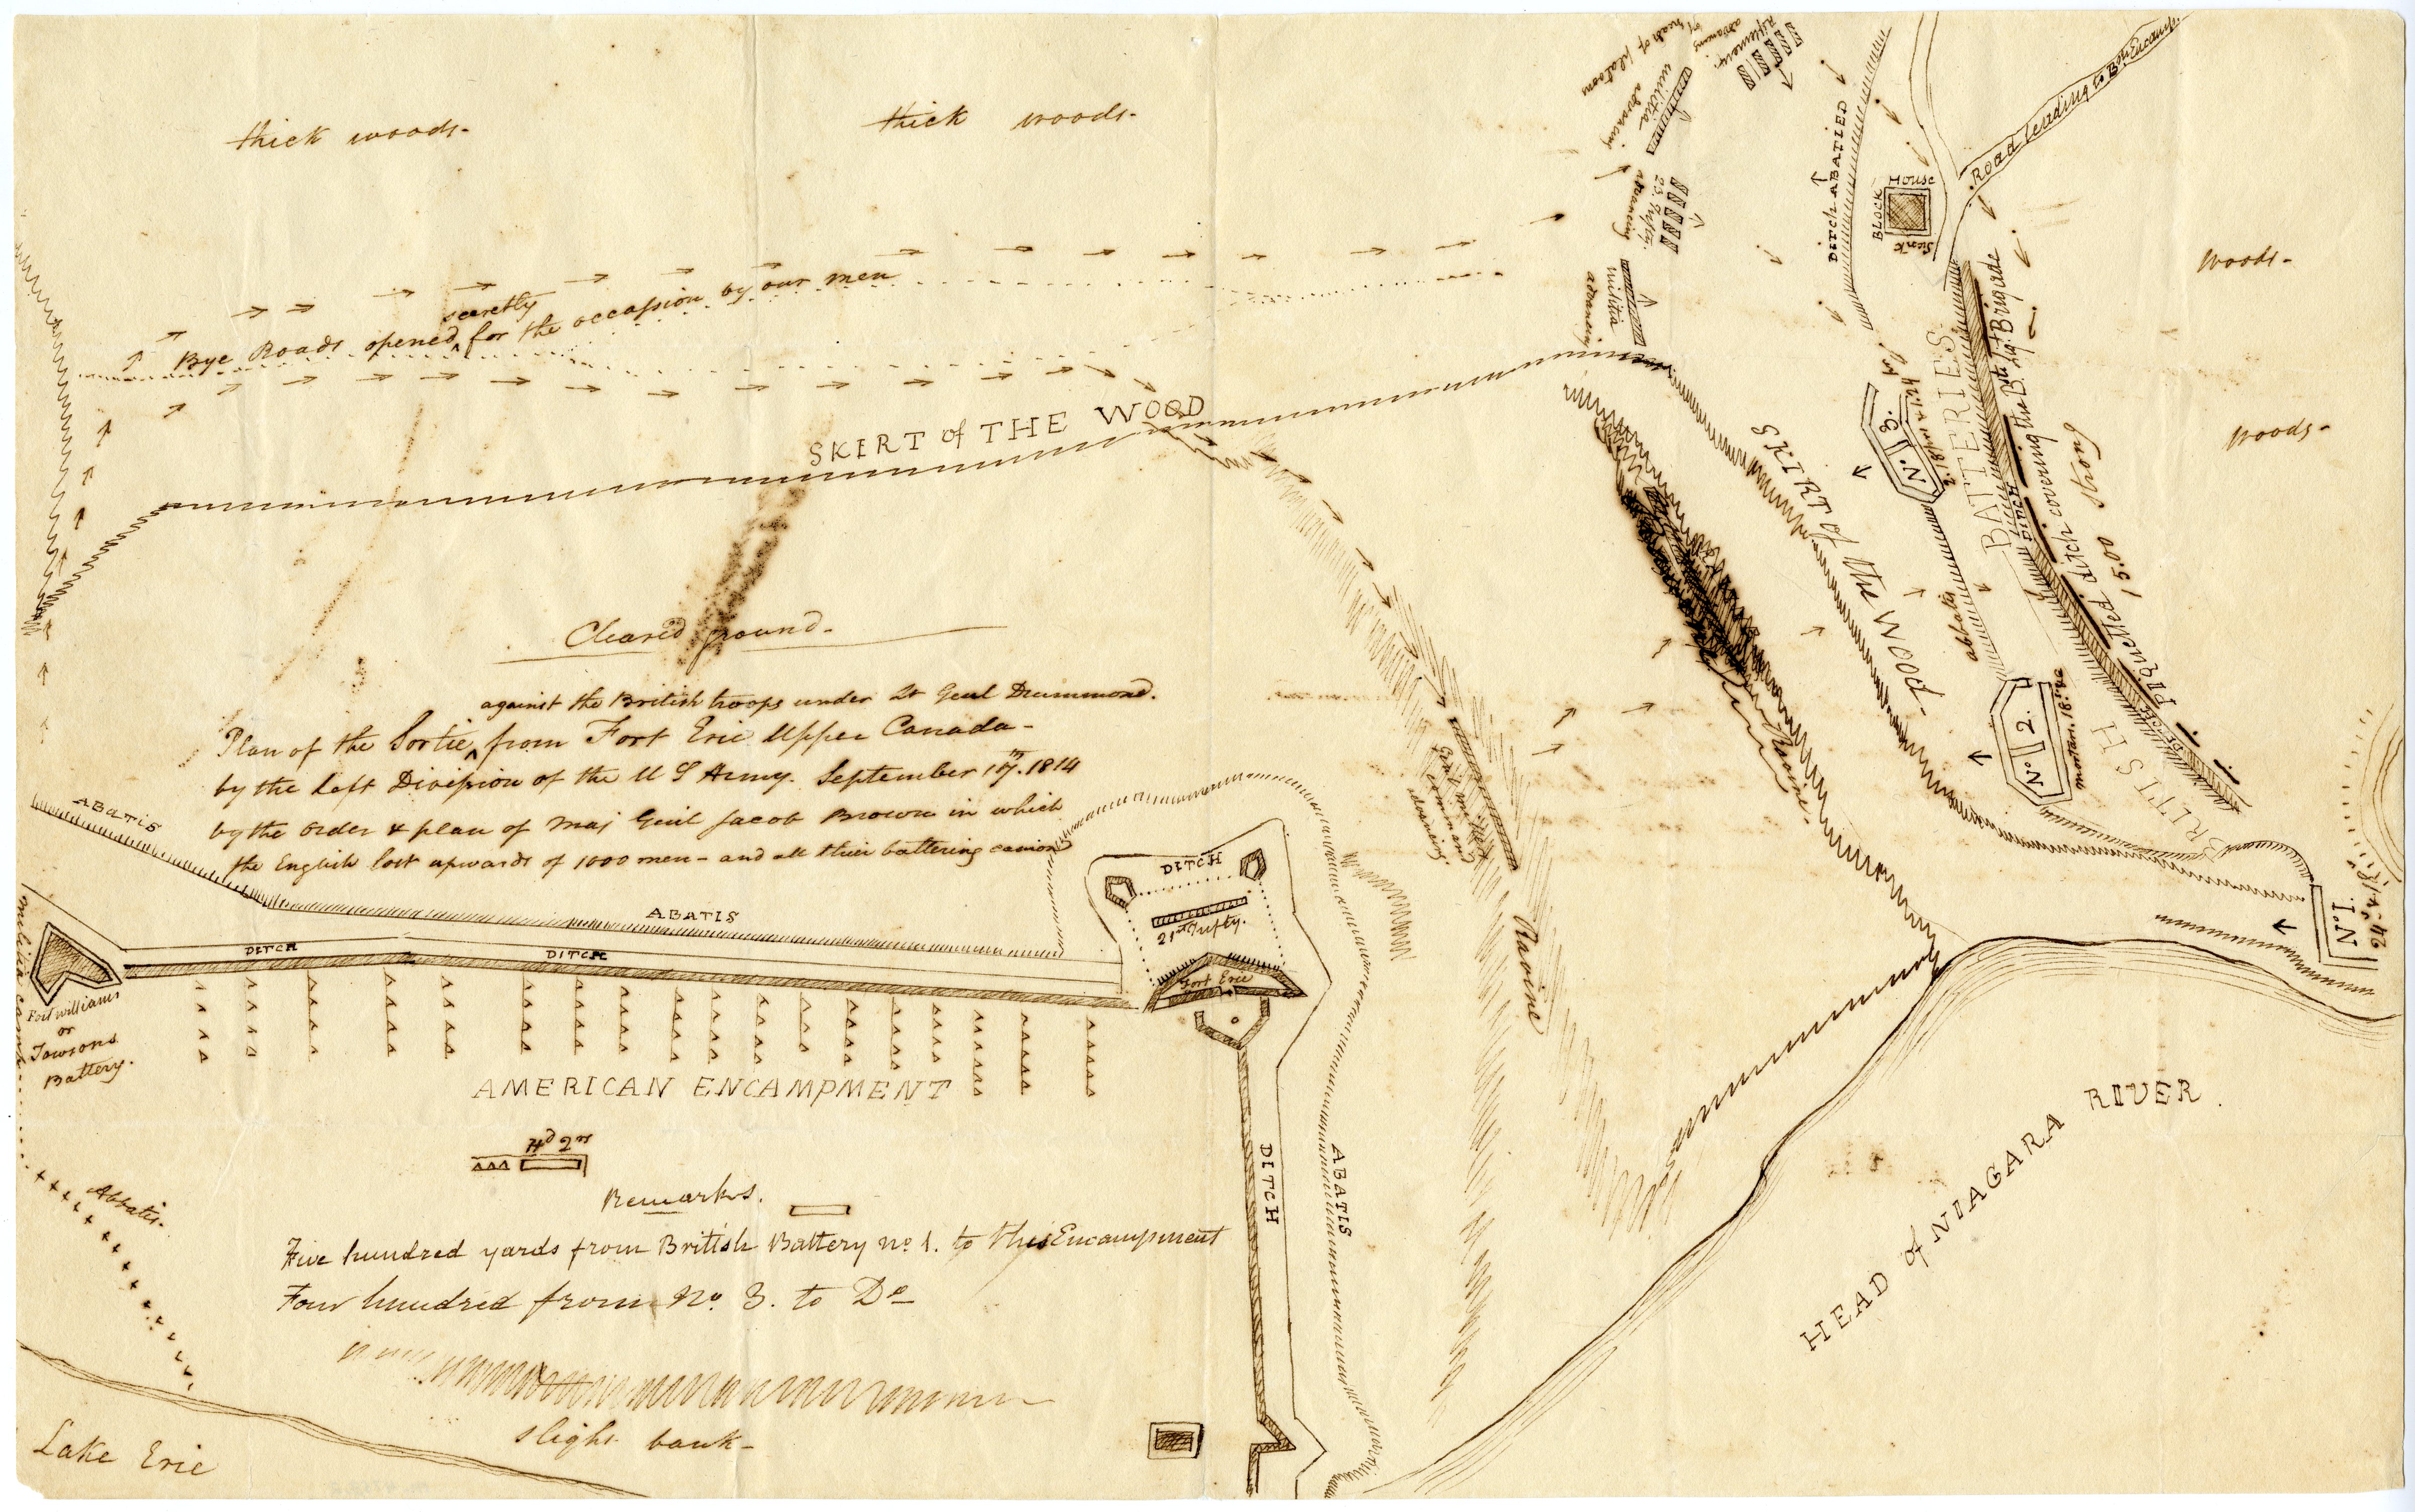 thick woods-
thick woods-
Riflemen
advancing
by heads of platoons
militia
advancing
23. Infty.
advancing
militia
advancing
DITCH ABATIED
BLOCK
HOUSE
Road leading to Bsh Encamp
woods-
woods-
secretly
Bye Roads opened ^ for the occassion by our men
SKIRT of THE WOOD
SKIRT of the WOOD-
No. 3.
BRITISH BATTERIES.
DITCH
DITCH
Piquetted ditch covering the B.
Brigade
1500 strong
abbatis
No 2.
No. 1.
Cleared ground.
against the British troops under Lt Genl Drummond.
Plan of the Sortie ^ from Fort Erie Upper Canada-
by the Left Division of the U S Army. September 17th. 1814
by the order & plan of Maj Genl Jacob Brown in which
the English lost upwards of 1000 men - and all their battering cannon
Genl Miller
command
advancing
Ravine
Ravine
ABATIS
ABATIS
DITCH
DITCH
DITCH
21st Infty.
Fort Erie
militia camp
Fort Williams
or
Towsons
Battery.
AMERICAN ENCAMPMENT
Hd 2rs
Abbatis-
Remarks.
Five hundred yards from British Battery no. 1. to this Encampment
Four hundred from No. 3. to Do
slight bank-
Lake Erie
DITCH
ABATIS
HEAD of NIAGARA RIVER.